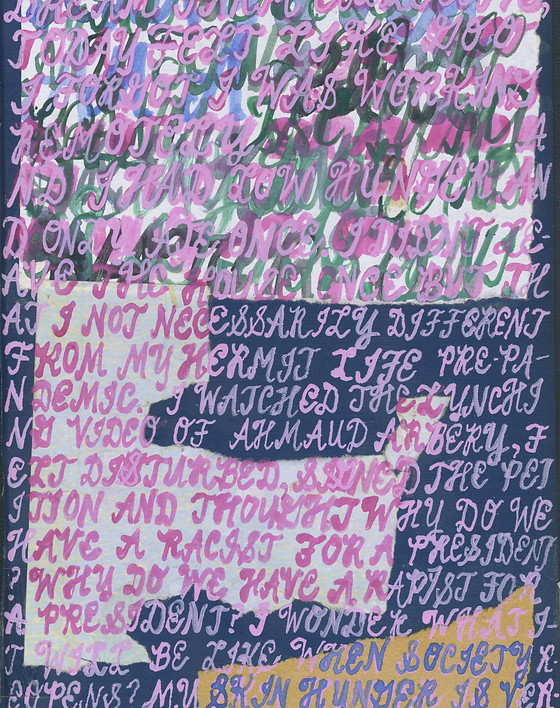 TODAY FELT LIKE 500
I FORGOT I WAS WORKING
REMOTELY A
ND I HAD LOW HUNGER AN
D ONLY ATE ONCE. I DIDN'T LE-
AVE THE HOUSE ONCE BUT TH
AT I NOT NECESSARILY DIFFERENT
FROM MY HERMIT LIFE PRE-PA-
NDEMIC. I WATCHED THE LYNCHI
NG VIDEO OF AHMAUD ARBERY, F
ELT DISTURBED, SIGNED THE PETI
TION AND THOUGHT WHY DO WE
HAVE A RACIST FOR A PRESIDENT
? WHY DO WE HAVE A RAPIST FOR
A PRESIDENT? I WONDER WHAT I
T WILL BE LIKE WHEN SOCIETY R
EOPENS? MY SKIN HUNGER IS VER